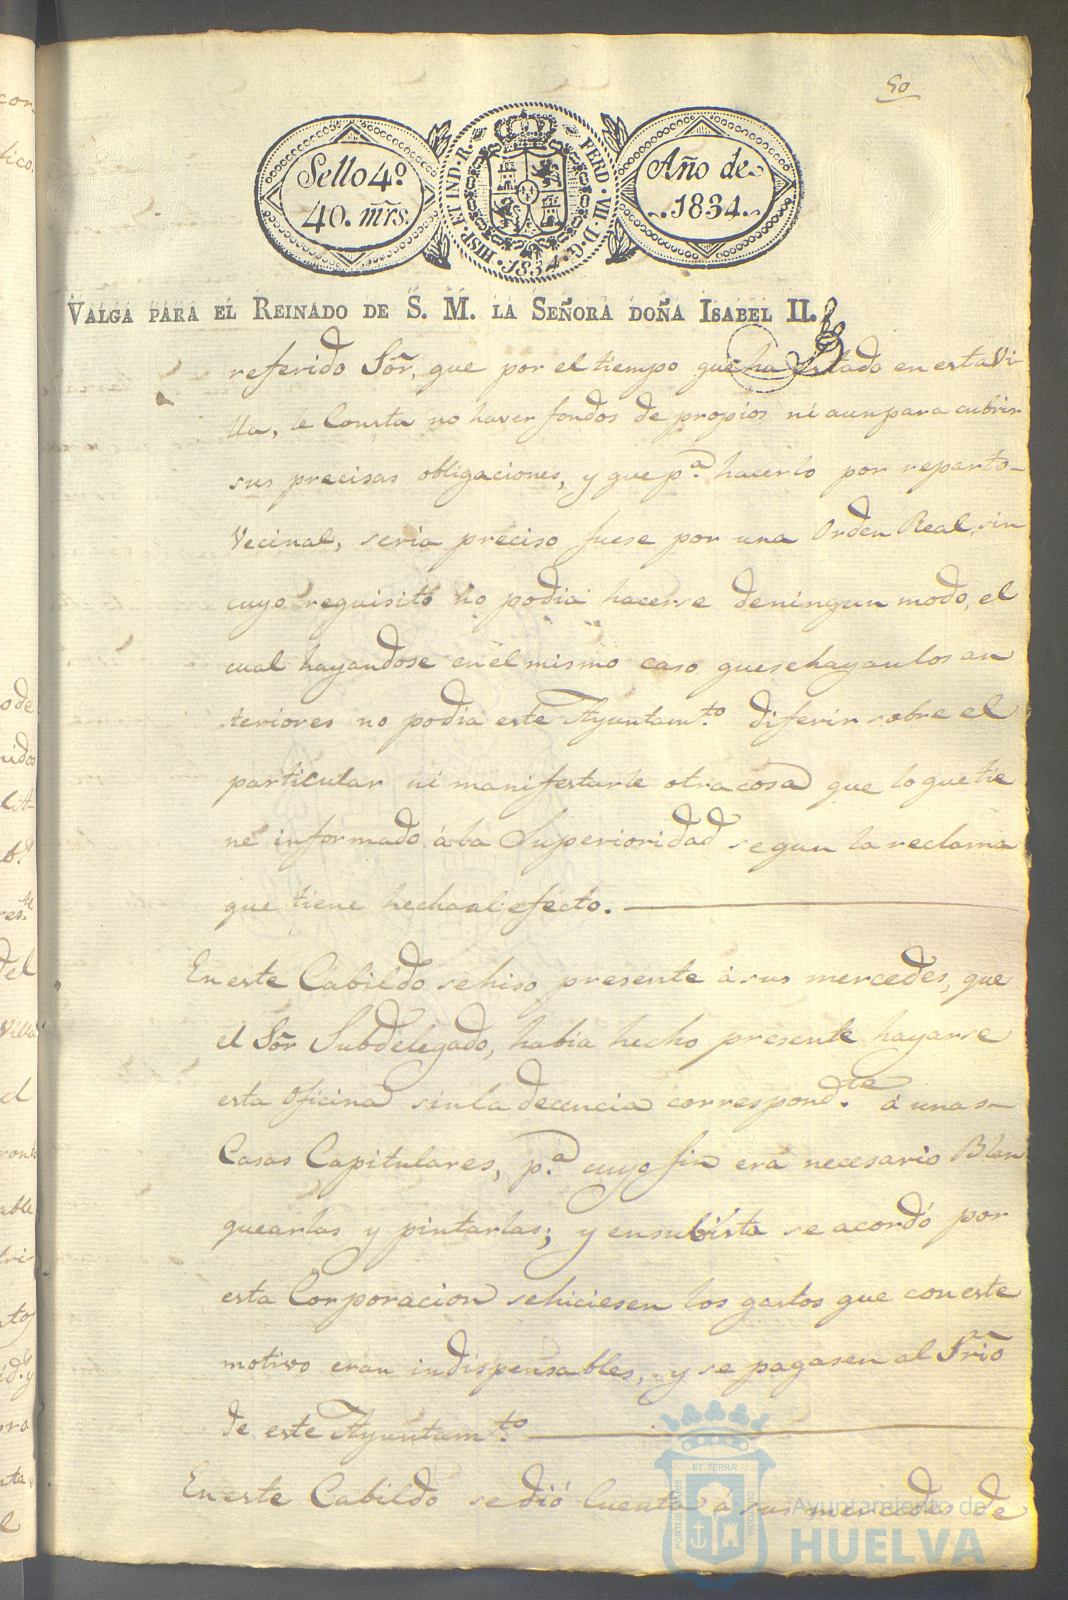 50
Sello 4º
40. mrs.
HISP. ET IND. R.
FERD. VII. D. G.
1834
Año de
1834.
VALGA PARA EL REINADO DE S. M. LA SEÑORA DOÑA ISABEL II.
referido Sor, que por el tiempo que ha estado en esta Vi
lla, le Consta no haver fondos de propios ni aun para cubrir
sus precisas obligaciones, y que pª hacerlo por reparto-
Vecinal, seria preciso fuese por una Orden Real, sin
cuyo requisito no podia hacerse de ningun modo, el
cual hayandose en el mismo caso que se hayan los an
teriores no podia este Ayuntamto diferir sobre el
particular ni manifestarle otra cosa que lo que tie
ne informado á la Superioridad segun la reclama
que tiene hecha al efecto.
En este Cabildo se hiso presente á sus mercedes, que
el Sor Subdelegado, habia hecho presente hayarse
esta Oficina sin la decencia correspondte á unas
Casas Capitulares, pª cuyo fin erá necesario Blan
quearlas y pintarlas; y en su bista se acordó por
esta Corporacion se hiciesen los gastos que con este
motivo eran indispensables, y se pagasen al Srio
de este Ayuntamto
En este Cabildo se dió Cuenta á sus mercedes de
ET TERRÆ
PORTUS MARIS
CUSTODIA
Ayuntamiento de
HUELVA